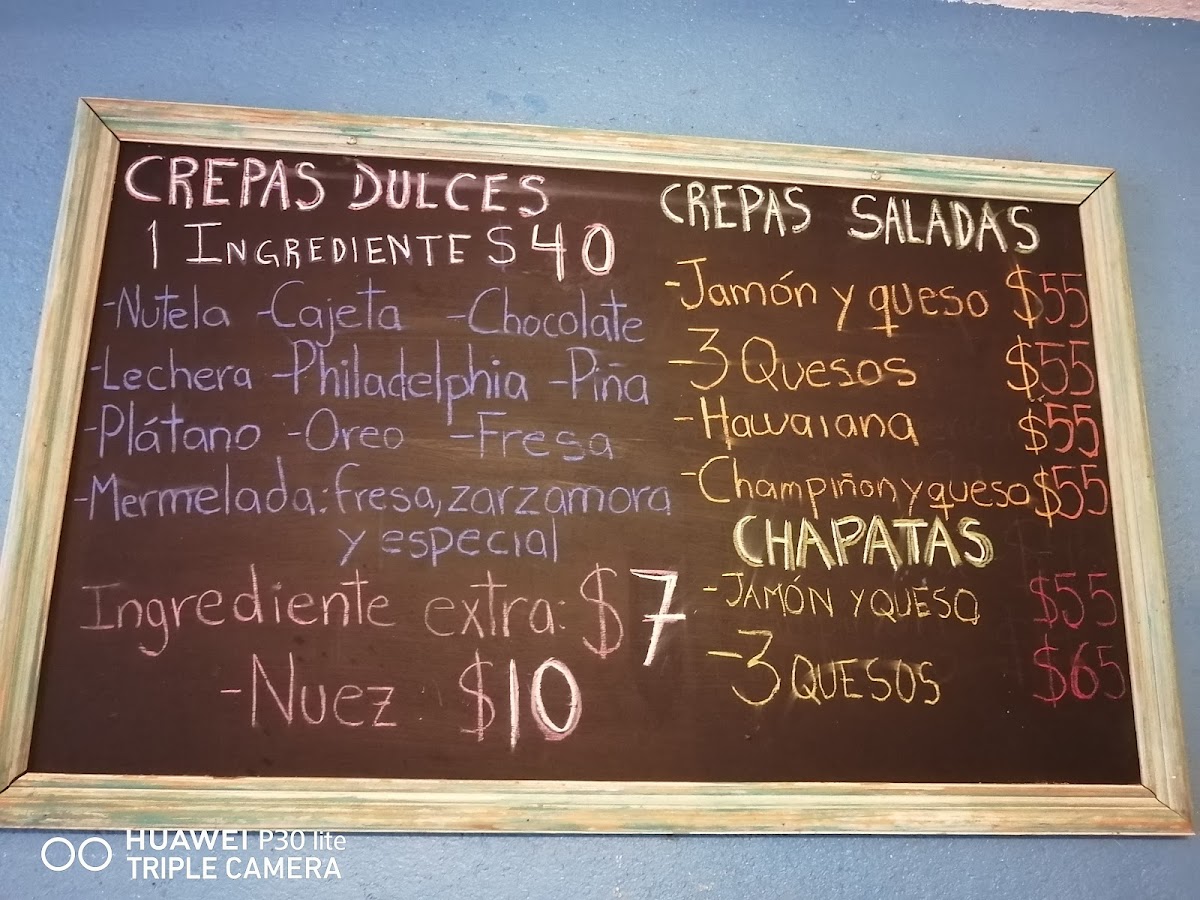 CREPAS DULCES
1 INGREDIENTE $40
-Nutela -Cajeta -Chocolate
-Lechera -Philadelphia -Piña
-Plátano -Oreo -Fresa
-Mermelada: fresa, zarzamora
y especial
Ingrediente extra: $7
-Nuez $10
CREPAS SALADAS
-Jamón y queso $55
-3 Quesos $55
-Hawaiana $55
-Champiñon y queso $55
CHAPATAS
-JAMÓN Y QUESO $55
-3 QUESOS $65
HUAWEI P30 lite
TRIPLE CAMERA